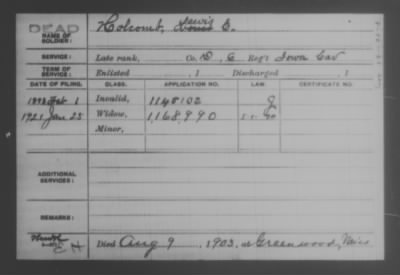 DEAD Holcomb, Lewis E.
NAME OF SOLDIER:
SERVICE: Late rank, Co. D, 6 Reg't Iowa Cav
TERM OF SERVICE: Enlisted , 1 Discharged , 1
DATE OF FILING. CLASS. APPLICATION NO. LAW. CERTIFICATE NO.
1893 Feb 1 Invalid, 1145102 G
1921 Jan 25 Widow, 1,168,990
Minor,
ADDITIONAL SERVICES:
REMARKS:
Died Aug 9, 1903, at Greenwood, Miss